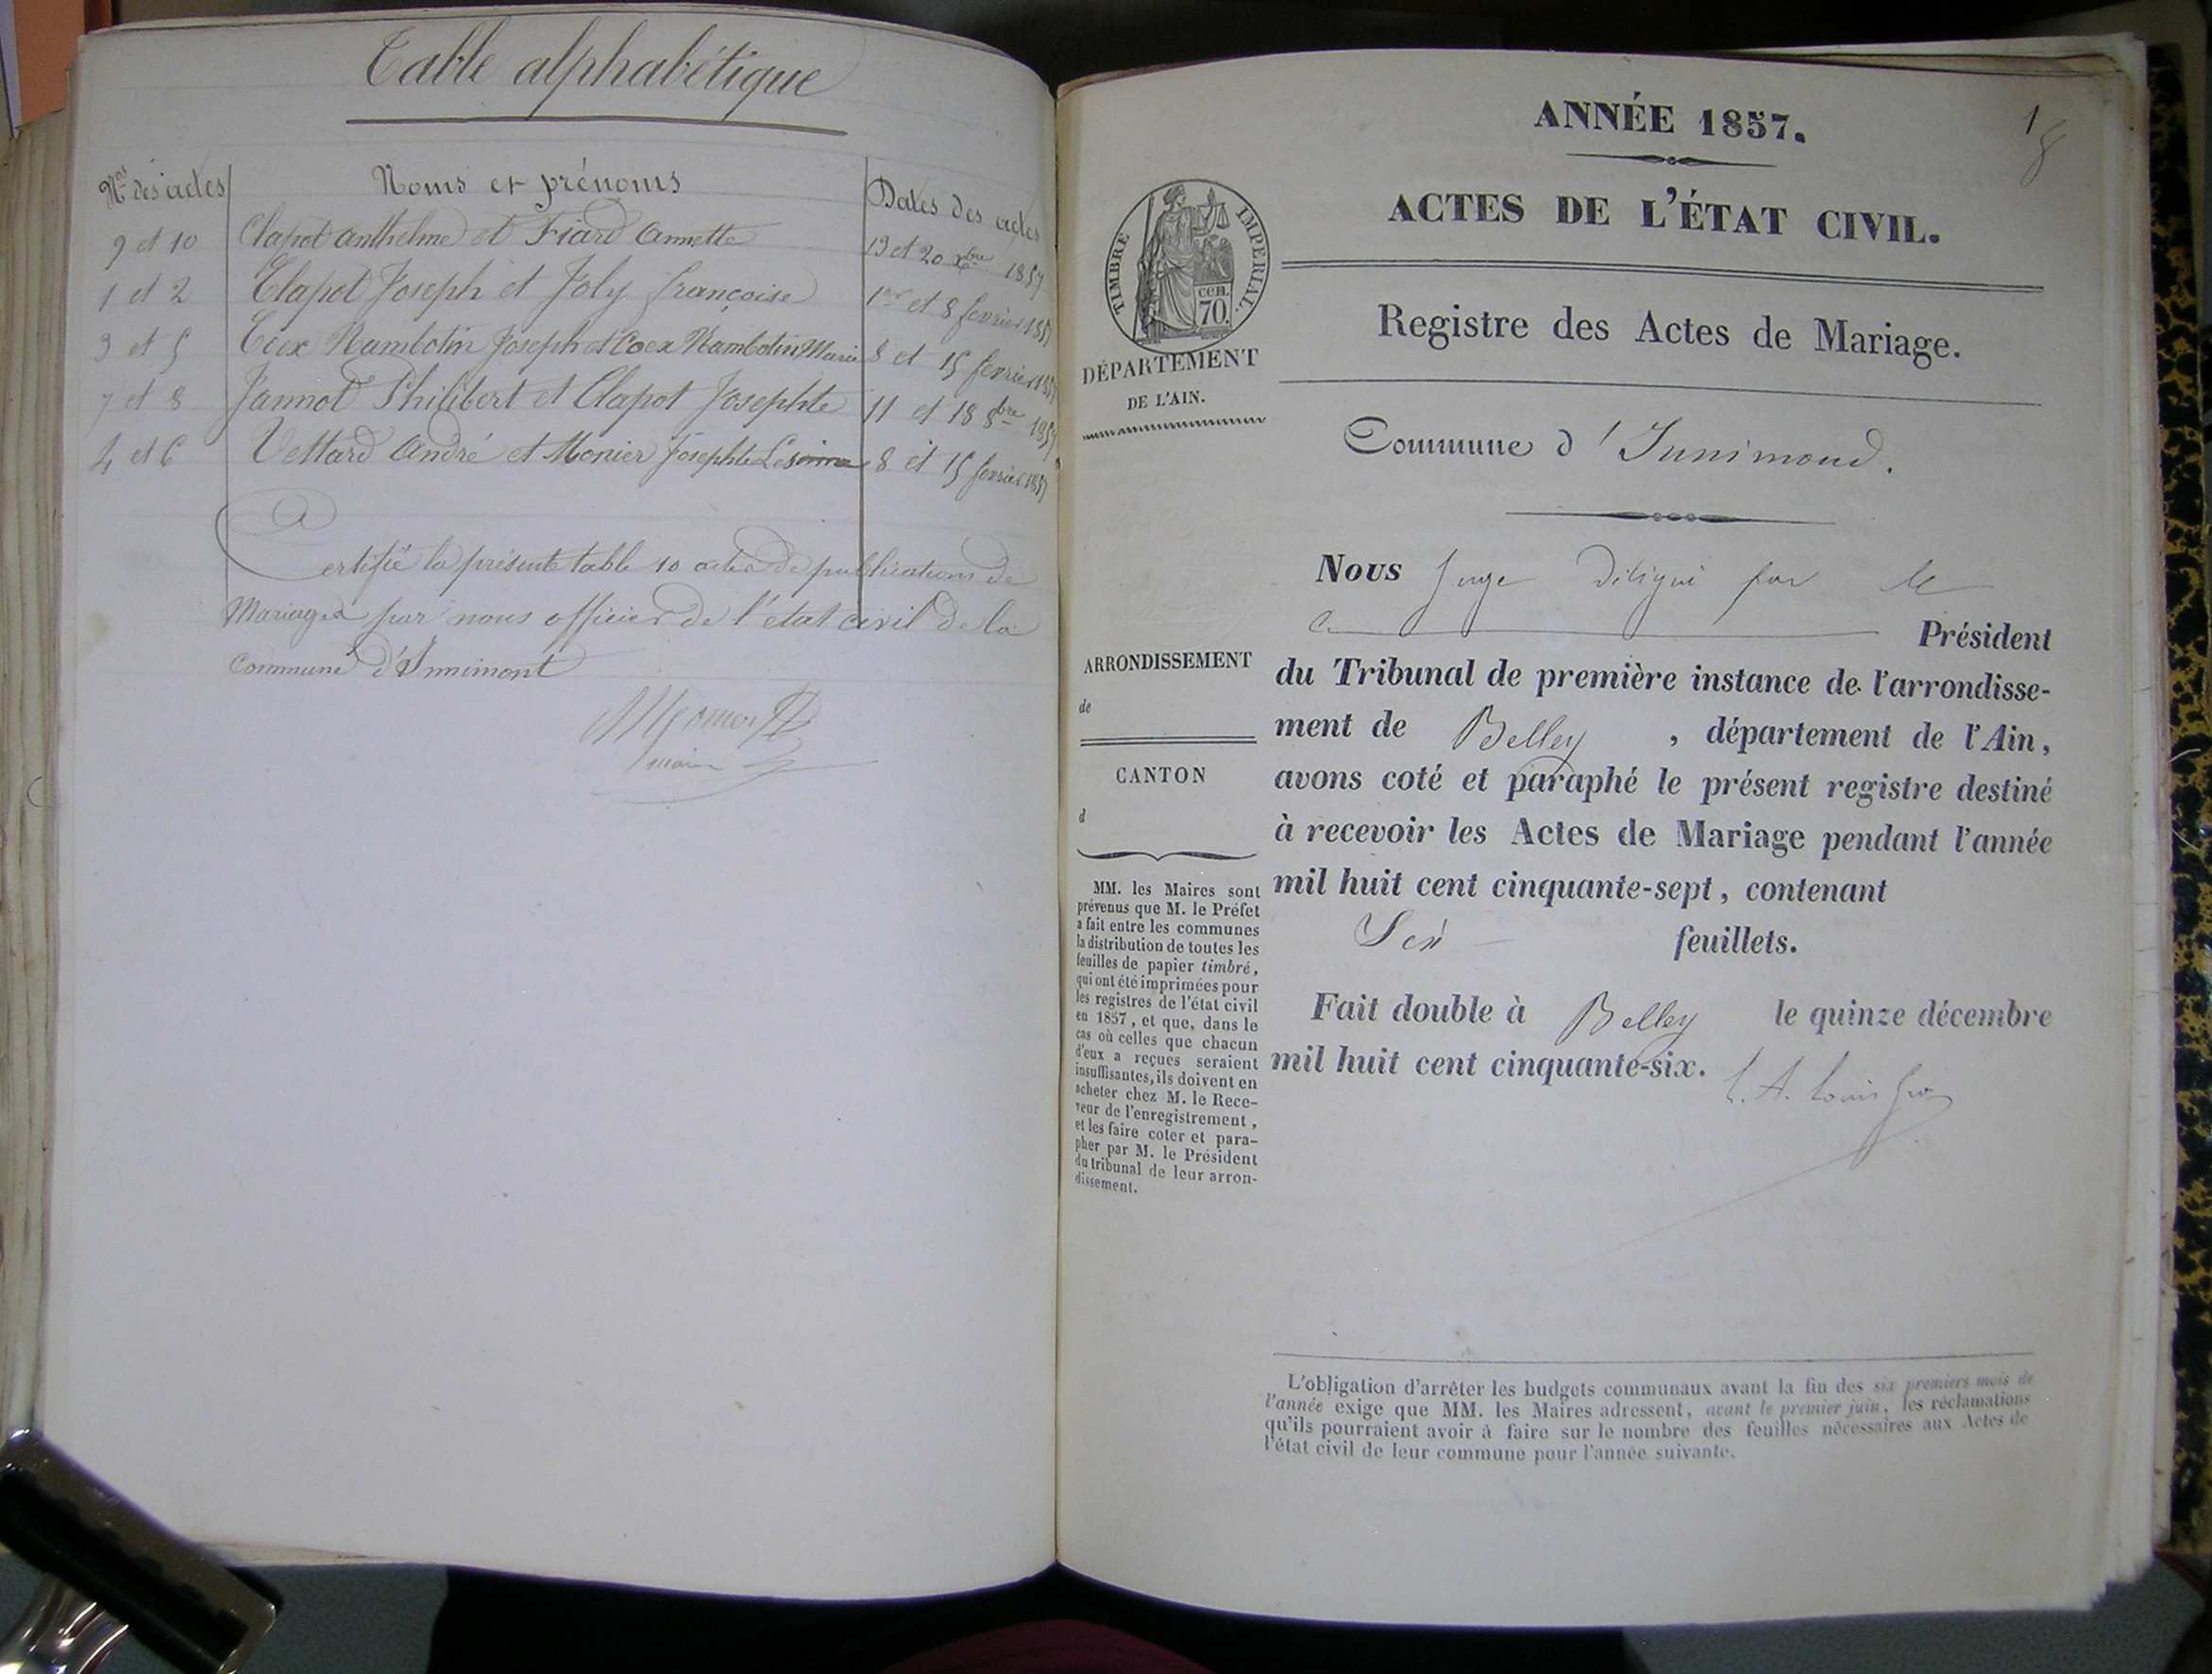 Table alphabétique
Nos des actes Noms et prénoms Dates des actes
9 et 10 Clapot Anthelme et Fiard Annette 13 et 20 Xbre 1857
1 et 2 Clapot Joseph et Joly françoise 1er et 8 fevrier 1857
3 et 5 Coex Nambotin Joseph et Coex Nambotin Marie 8 et 15 fevrier 1857
7 et 8 Jannot Philibert et Clapot Josephte 11 et 18 8bre 1857
4 et 6 Vettard André et Monier Josephte 8 et 15 fevrier 1857
Certifié la présente table 10 actes de publications de
Mariages par nous officier de l'état civil de la
Commune d'Innimont
maire
1
8
ANNÉE 1857.
ACTES DE L'ÉTAT CIVIL.
TIMBRE IMPERIAL.
CEN.
70.
DÉPARTEMENT
DE L'AIN.
Registre des Actes de Mariage.
Commune d'Innimond.
Nous Juge Délégué par le
Président
du Tribunal de première instance de l'arrondisse-
ment de Belley, département de l'Ain,
avons coté et paraphé le présent registre destiné
à recevoir les Actes de Mariage pendant l'année
mil huit cent cinquante-sept, contenant
Six feuillets.
Fait double à Belley le quinze décembre
mil huit cent cinquante-six.
ARRONDISSEMENT
de
CANTON
d
MM. les Maires sont
prévenus que M. le Préfet
a fait entre les communes
la distribution de toutes les
feuilles de papier timbré,
qui ont été imprimées pour
les registres de l'état civil
en 1857, et que, dans le
cas où celles que chacun
d'eux a reçues seraient
insuffisantes, ils doivent en
acheter chez M. le Rece-
veur de l'enregistrement,
et les faire coter et para-
pher par M. le Président
du tribunal de leur arron-
dissement.
L'obligation d'arrêter les budgets communaux avant la fin des six premiers mois de
l'année exige que MM. les Maires adressent, avant le premier juin, les réclamations
qu'ils pourraient avoir à faire sur le nombre des feuilles nécessaires aux Actes de
l'état civil de leur commune pour l'année suivante.